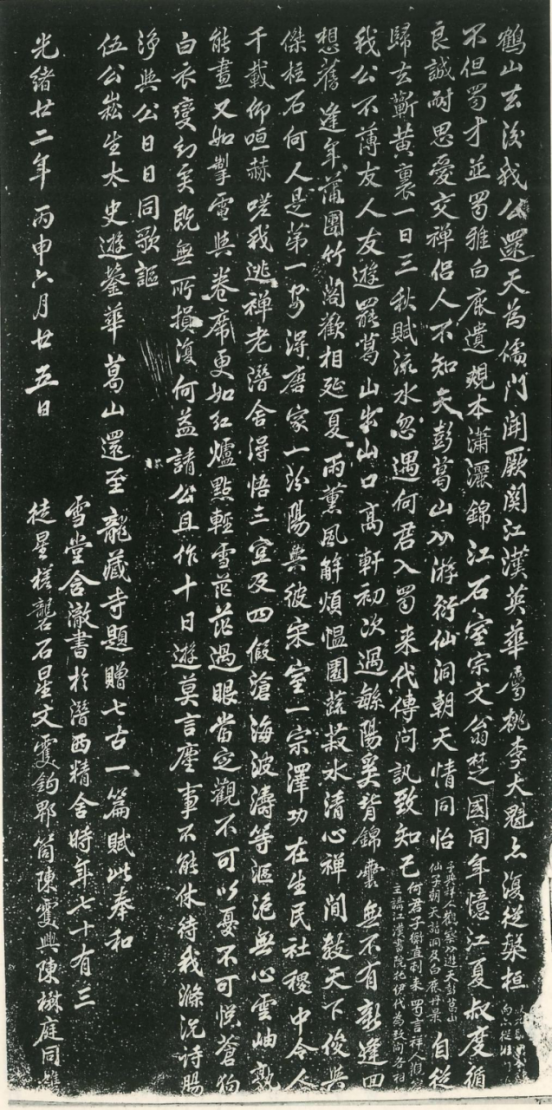 鶴山去後我公還天為儒門開厥関江漢英華屬桃李大魁亦復從槃桓
不但蜀才並蜀雅白鹿遺規本瀟灑錦江石室宗文翁楚國同年憶江夏叔度循
良誠耐思愛交禪侶人不知天彭葛山以游衍仙洞朝天情同怡
仙子朝天詰洞及白鹿丹景
自從
歸去蘄黃裏一日三秋賦流水忽遇何君入蜀来代傳问訊致知己
何君子
主講江漢書院
我公不薄友人友遊罷葛山出山口高軒初次過繇陽奚背錦囊無不有新逢回
想舊逢年蒲團竹閣歡相延夏雨薰風解煩愠園蔬菽水清心禪閒數天下俊與
傑柱石何人是第一安得唐家一汾陽與彼宋室一宗澤功在生民社稷中令人
千載仰烜赫嗟我逃禪老潛舍得悟三宜及四假滄海波濤等漚泡無心雲岫孰
能畫又如掣電與卷席更如紅爐點輕雪花花過眼當定觀不可以憂不可悦蒼狗
白衣變幻矣既無所損復何益請公且作十日遊莫言塵事不能休待我滌洗詩腸
浄與公日日同歌謳
伍公崧生太史遊鎣華葛山還至龍藏寺題贈七古一篇賦此奉和
雪堂含澈書於潛西精舍時年七十有三
光緒廿二年丙申六月廿五日
徒星槎龔石星文雯鈞郫筒陳霞與陳樾庭同